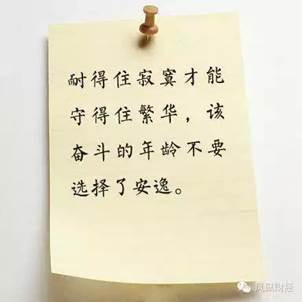 耐得住寂寞才能
守得住繁华，该
奋斗的年龄不要
选择了安逸。
凤凰财经